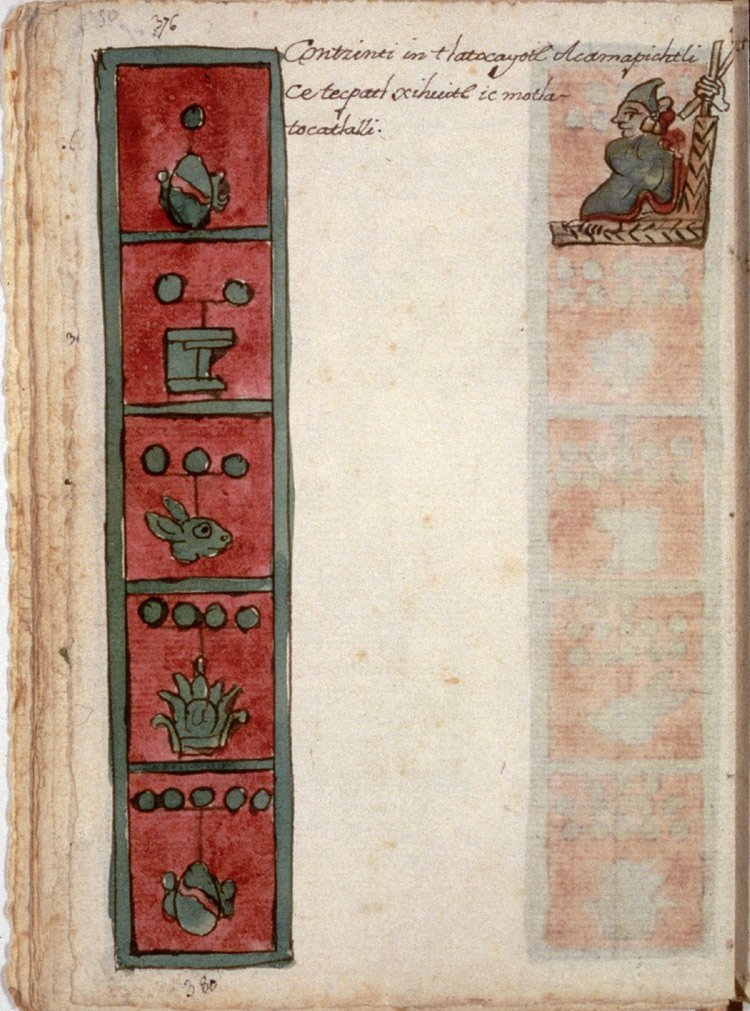 376
Contzinti in tlatocayotl Acamapichtli
Ce tecpatl xihuitl ic motla-
tocatlalli.
380